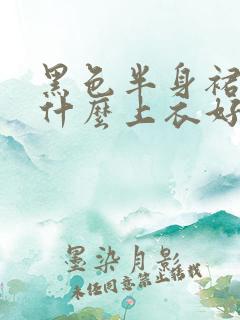 黑色半身裙
什麼上衣好
墨染月影
未经同意禁止搭载